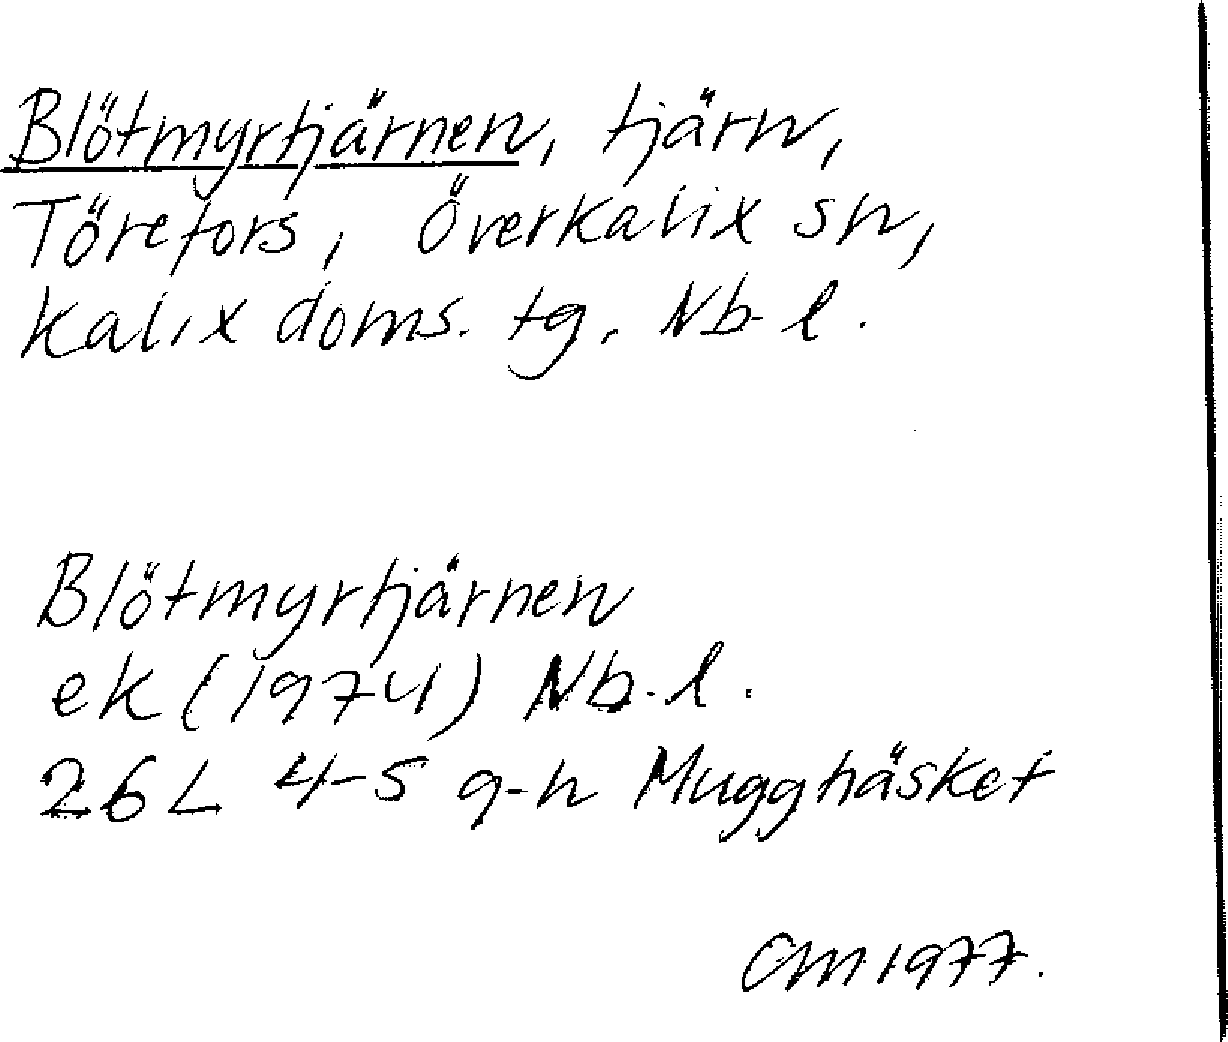 Blötmyrtjärnen, tjärn,
Törefors, Överkalix sn,
Kalix doms. tg. Nb. l.
Blötmyrtjärnen
ek (1974) Nb. l.
26 L 4-5 g-h Mugghäsket
CM 1977.